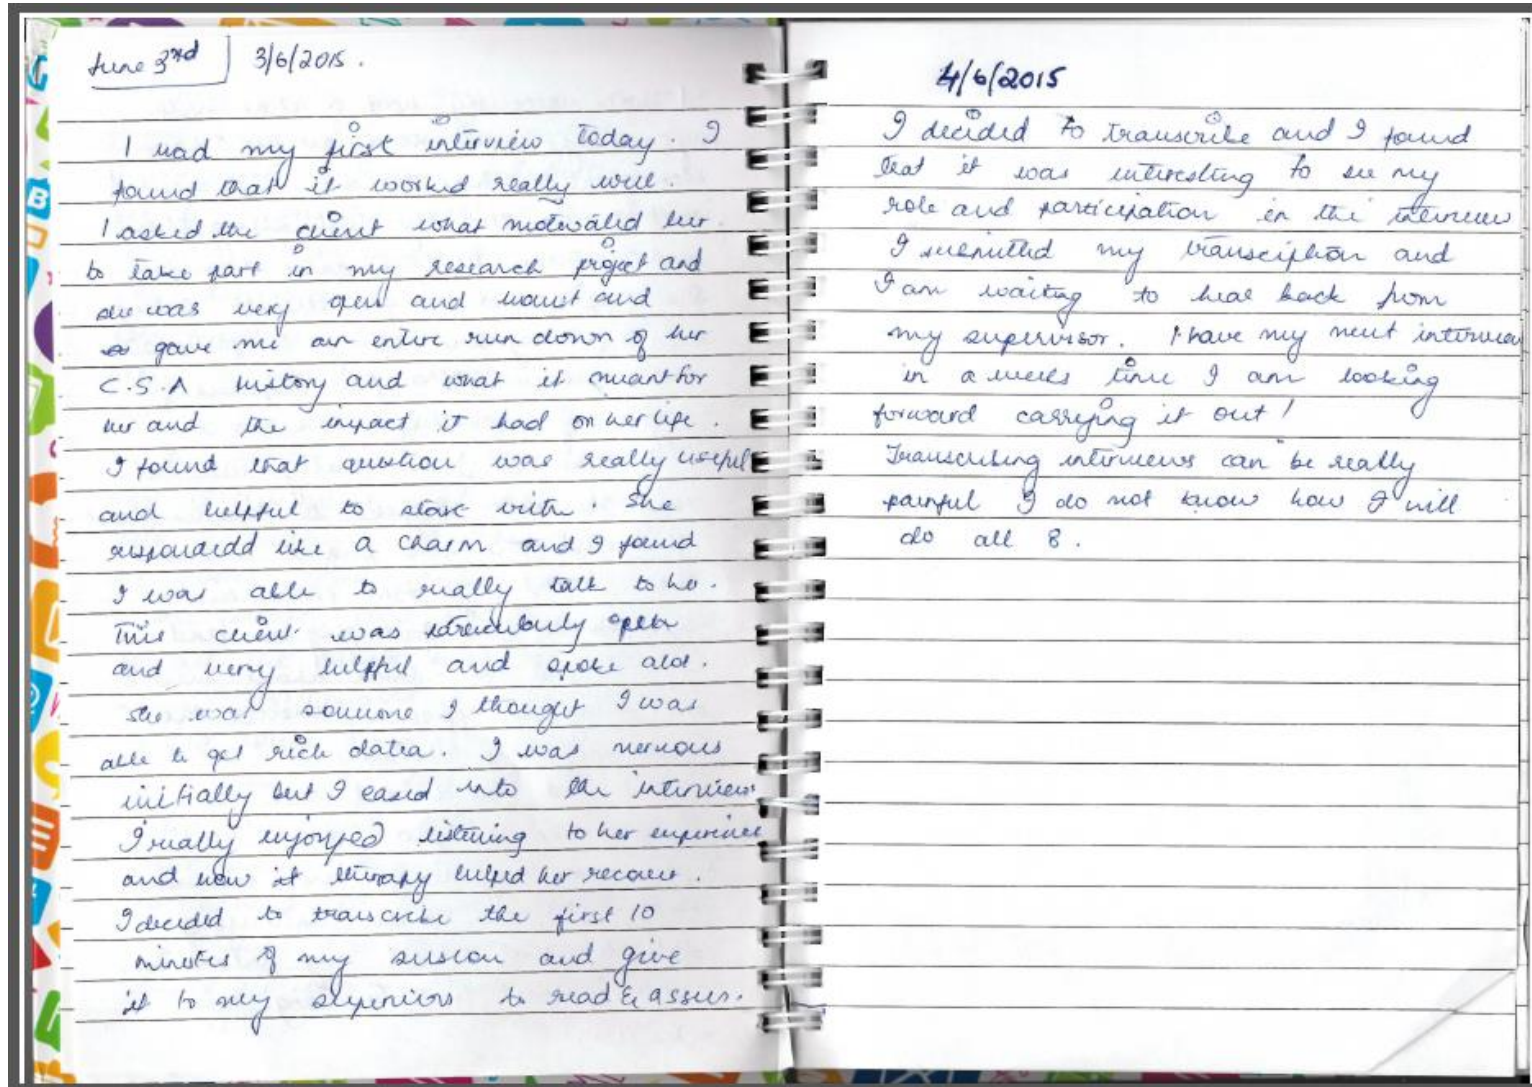 June 3rd 3/6/2015.
I had my first interview today. I
found that it worked really well.
I asked the client what motivated her
to take part in my research project and
she was very open and honest and
gave me an entire run down of her
C.S.A history and what it meant for
her and the impact it had on her life.
I found that question was really useful
and helpful to start with. She
respondedd like a charm and I found
I was able to really talk to her.
This client was particularly open
and very helpful and spoke alot.
She was someone I thought I was
able to get rich data. I was nervous
initially but I eased into the interview
I really enjoyed listening to her experience
and how it therapy helped her recover.
I decided to transcribe the first 10
minutes of my session and give
it to my supervisors to read & assess.
4/6/2015
I decided to transcribe and I found
that it was interesting to see my
role and participation in the interview
I submitted my transciption and
I am waiting to hear back from
my supervisor. I have my next interview
in a weeks time I am looking
forward carrying it out!
Transcribing interviews can be really
painful I do not know how I will
do all 8.